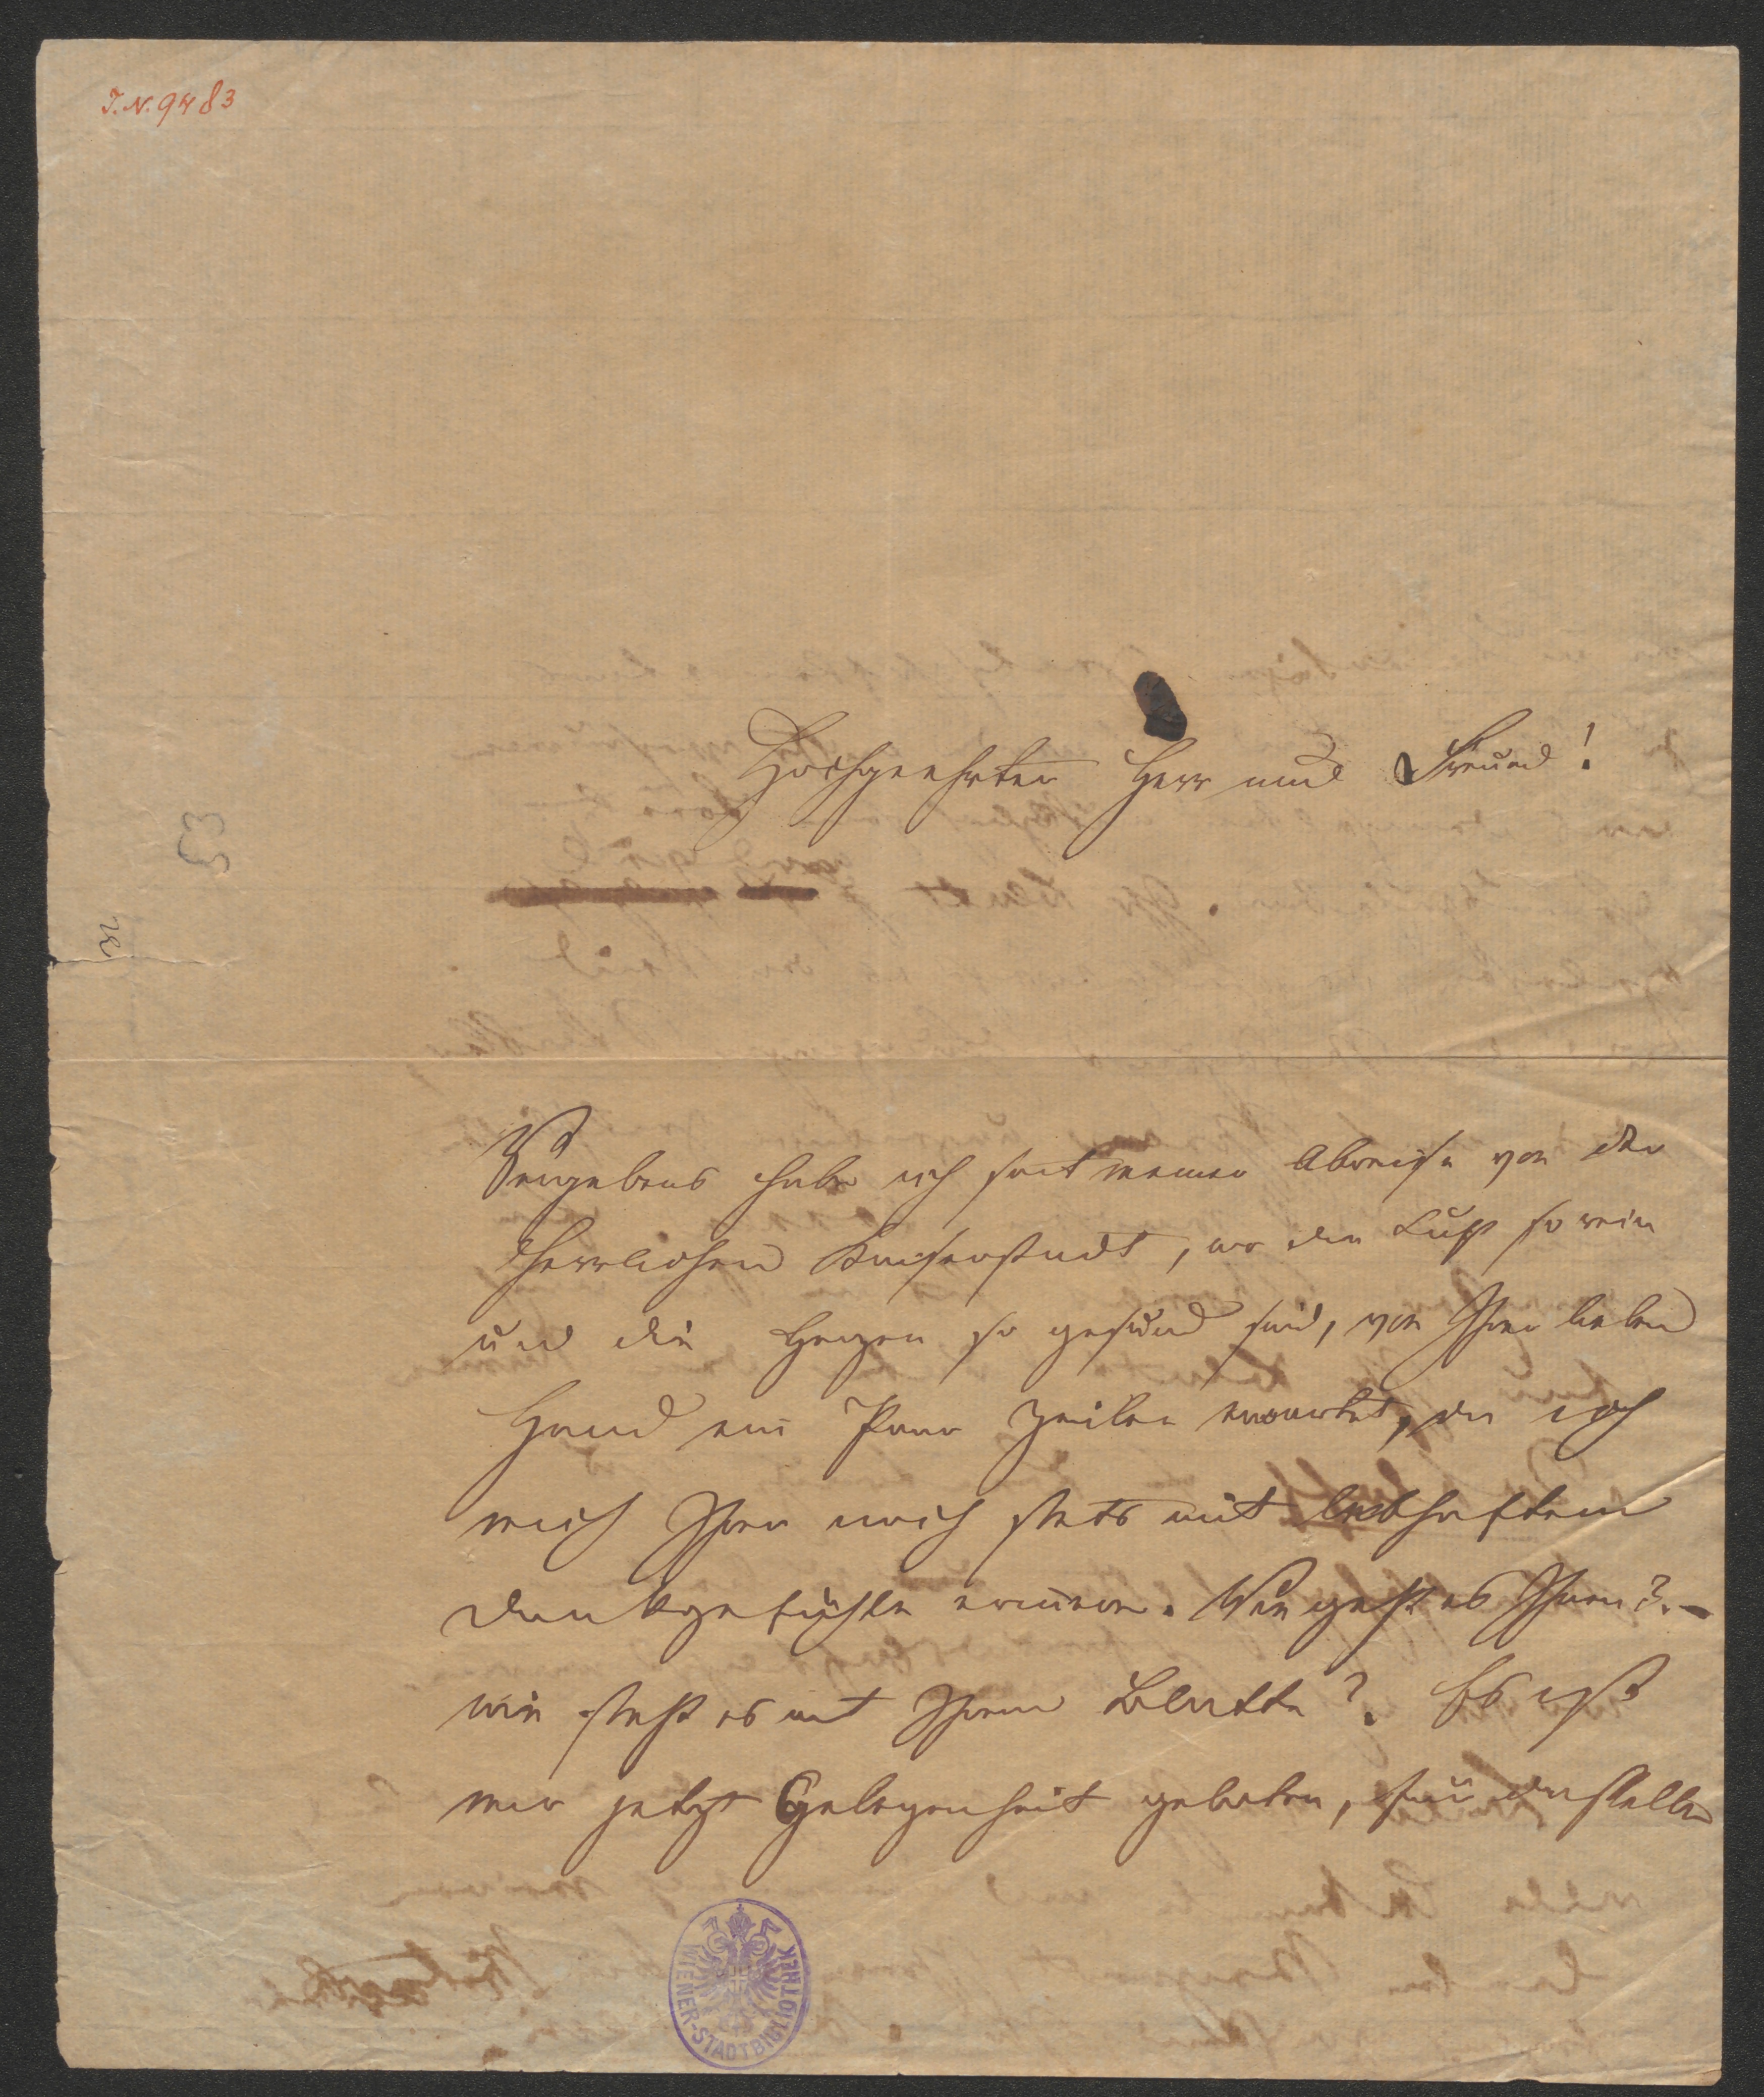 I.N. 9483
Hochgeehrter Herr und Freund!
Vergebens habe ich seit meiner Abreise von der
herrlichen Kaiserstadt, wo die Luft so rein
und die Herzen so gesund sind, von Ihrer lieben
Hand ein Paar Zeilen erwartet, da ich
mich Ihrer noch stets mit lebhaftem
Dankgefühle erinnere. Wie geht es Ihnen? –
wie steht es mit Ihrem Blatte? Es ist
mir jetzt Gelegenheit geboten, für dasselbe
WIENER-STADTBIBLIOTHEK